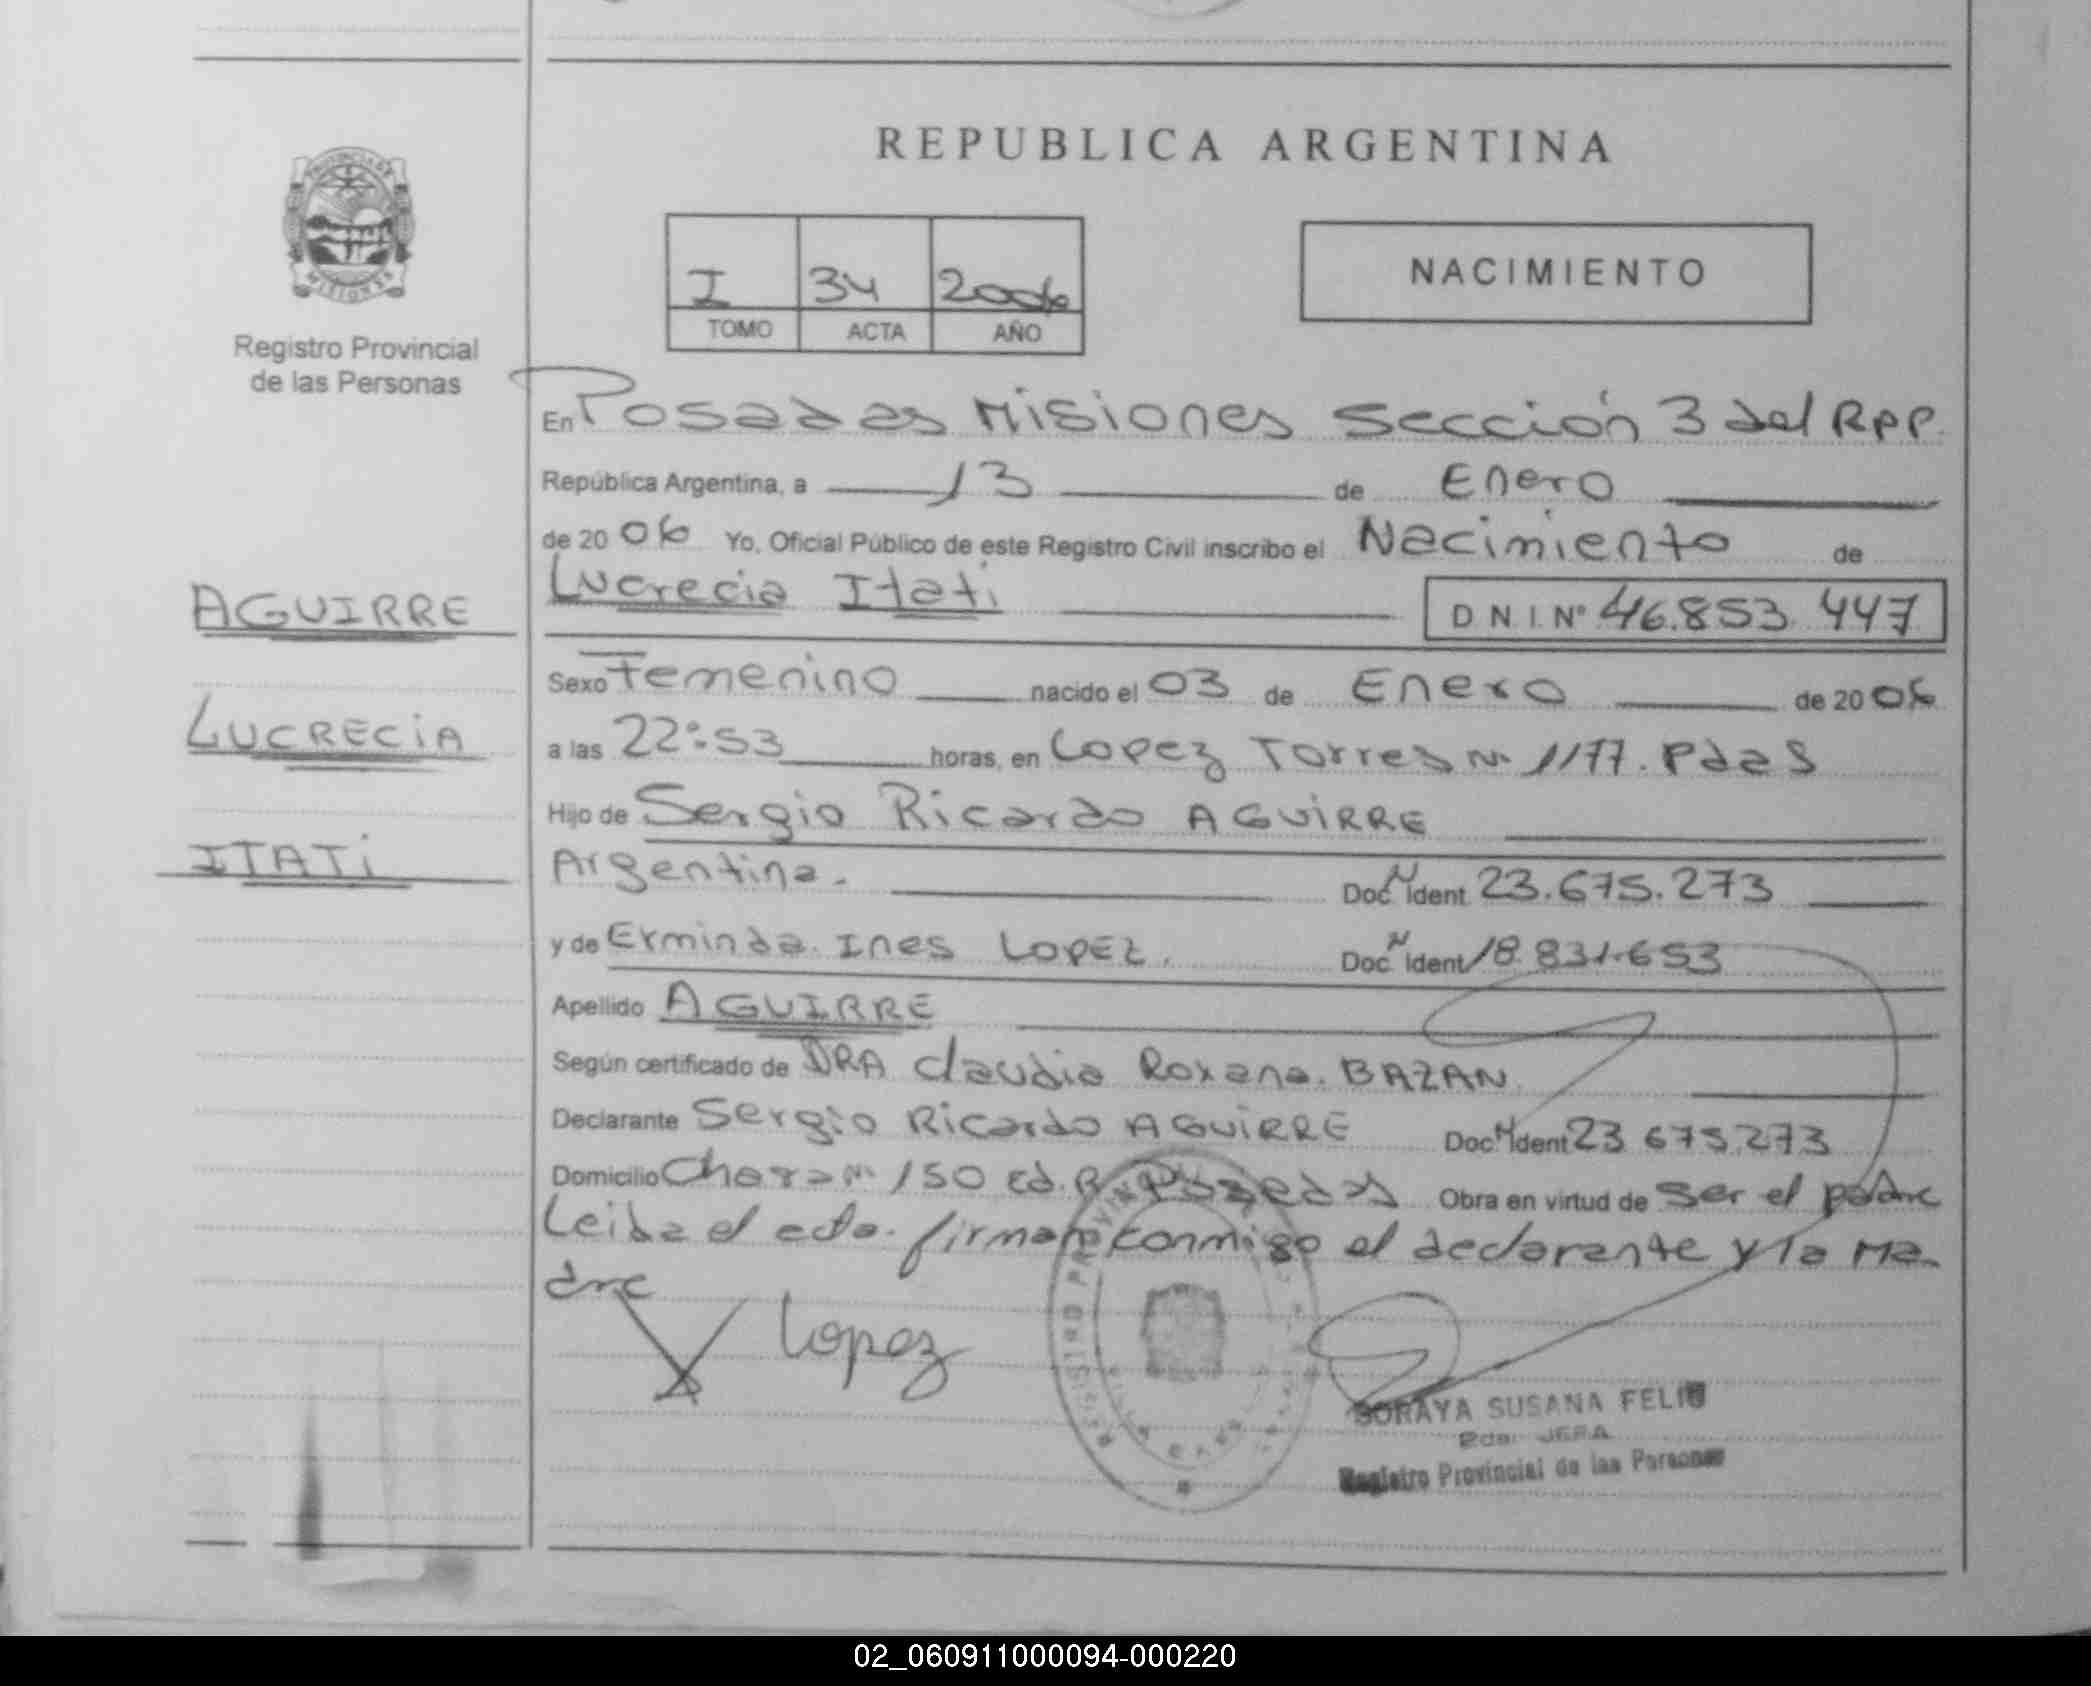 REPUBLICA ARGENTINA
PROVINCIA DE
MISIONES
Registro Provincial
de las Personas
I 34 2006
TOMO ACTA AÑO
NACIMIENTO
En Posadas Misiones Sección 3 del RPP.
República Argentina, a 13 de Enero
de 2006 Yo, Oficial Público de este Registro Civil inscribo el Nacimiento de
AGUIRRE
LUCRECIA
ITATI
Lucrecia Itati D N. I. Nº 46.853.447
Sexo Femenino nacido el 03 de Enero de 2006
a las 22:53 horas, en Lopez Torres Nº 1177. Pdas
Hijo de Sergio Ricardo AGUIRRE
Argentina. Doc. N Ident. 23.675.273
y de Erminda Ines LOPEZ. Doc. N Ident 18.831.653
Apellido AGUIRRE
Según certificado de DRA Claudia Roxana BAZAN
Declarante Sergio Ricardo AGUIRRE Doc. N Ident 23 675.273
Domicilio Chacra Nº 150 Posadas Obra en virtud de ser el padre
Leida el acta. firman conmigo el declarante y la Ma-
dre
Lopez
REGISTRO PROVIN
SORAYA SUSANA FELIU
JEFA
Registro Provincial de las Personas
02_060911000094-000220